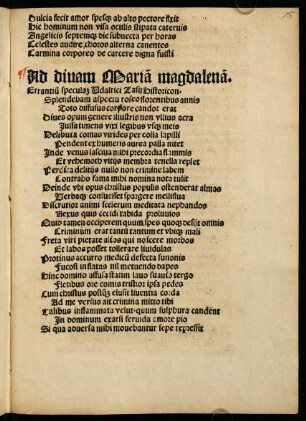 15
Dulcia fecit amor spesq ab alto pectore fixit
Hic hominum non visa oculis stipata cateruis
Angelicis septemq; die subuecta per horas
Celestes audire choros alterna canentes
Carmina corporeo de carcere digna fuisti
Ad diuam Mariā magdalenā.
Errantiū speculaꝫ Udalrici Tasij Histoꝛicon.
Splendebam aspectu roseo florentibus annis
Toto diffusus corpore candor erat
Diues opum genere illustris non vllius acra
Jussa timens vixi legibus vsq; meis
Delibuta comas virides per colla capilli
Pendent ex humeris aurea palla nitet
Inde venus lasciua mihi precordia flammis
Et vehemoth vitijs membra tenella replet
Perdita delitijs nullo non crimine labem
Contrabo fama mihi nomina nota tulit
Deinde vbi opus christus populis ostenderat almas
Uerbaq; consuesset spargere melliflua
Discrutior animi scelerum meditata nephandos
Nexus quis cecidi tabida proluuios
Quid tamen occiperem quum spes quoq; desijt omnis
Criminum erat tanti tantum et vbiq; mali
Freta viri pietate alios qui noscere morbos
Et labos posset tollerare liuidulas
Protinus accurro medicū defecta sunonis
Fucosi inflatas nil metuendo dapes
Hinc domino assusa statim lauo suauia tergo
Flenibus ore comis tristior ipsa pedes
Cum christus postq̄ elusit liuentia corda
Ad me versus ait crimina mitto tibi
Talibus inflammata velut quum sulphura candent
In dominum exarsi feruida amore pio
Si qua aduersa mihi mouebantur sepe repressit